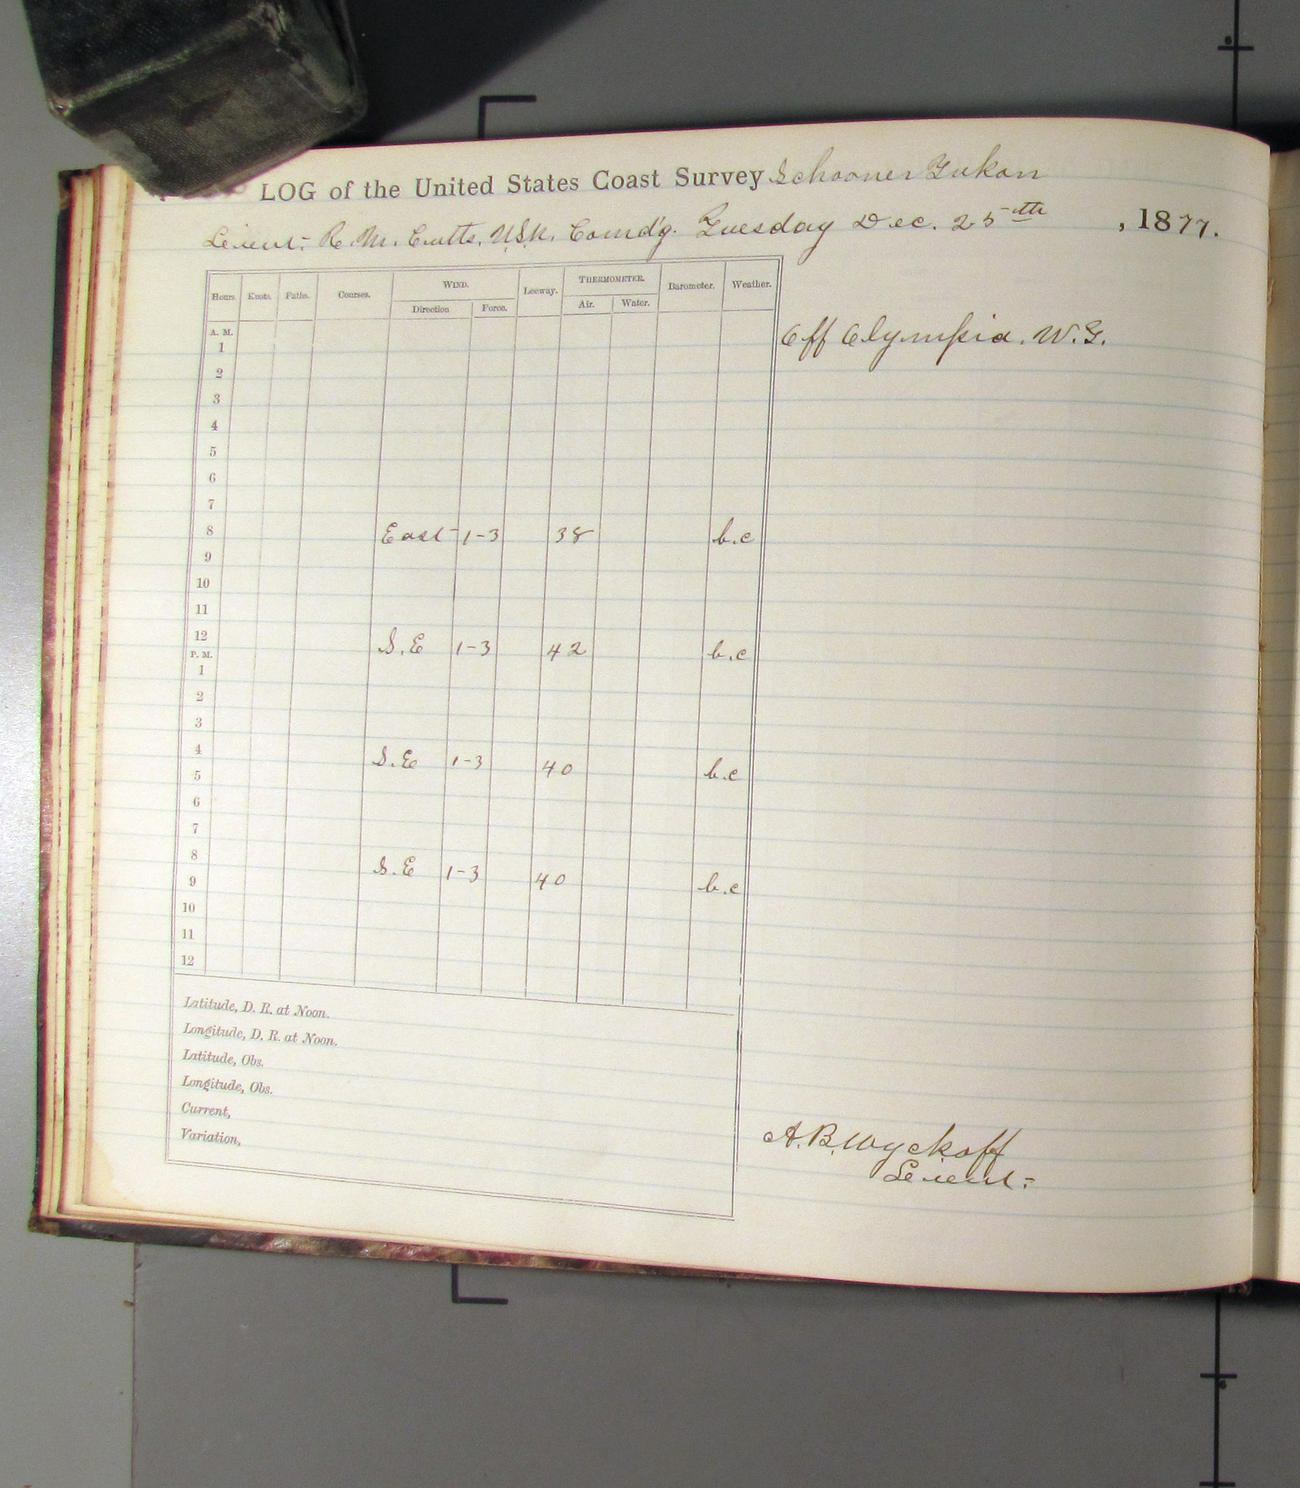 LOG of the United States Coast Survey Schooner Yukon
Lieut: R. M. Cutts, U.S.N. Comd'g. Tuesday Dec. 25th, 1877.
Hours. Knots. Faths. Courses. WIND. Leeway. THERMOMETER. Barometer. Weather.
Direction Force. Air. Water.
A. M.
1
Off Olympia. W.T.
2
3
4
5
6
7
8 East 1-3 38 b.c
9
10
11
12 S.E 1-3 42 b.c
P. M.
1
2
3
4 S.E 1-3 40 b.c
5
6
7
8 S.E 1-3 40 b.c
9
10
11
12
Latitude, D. R. at Noon.
Longitude, D. R. at Noon.
Latitude, Obs.
Longitude, Obs.
Current,
Variation,
A. B. Wyckoff
Lieut: